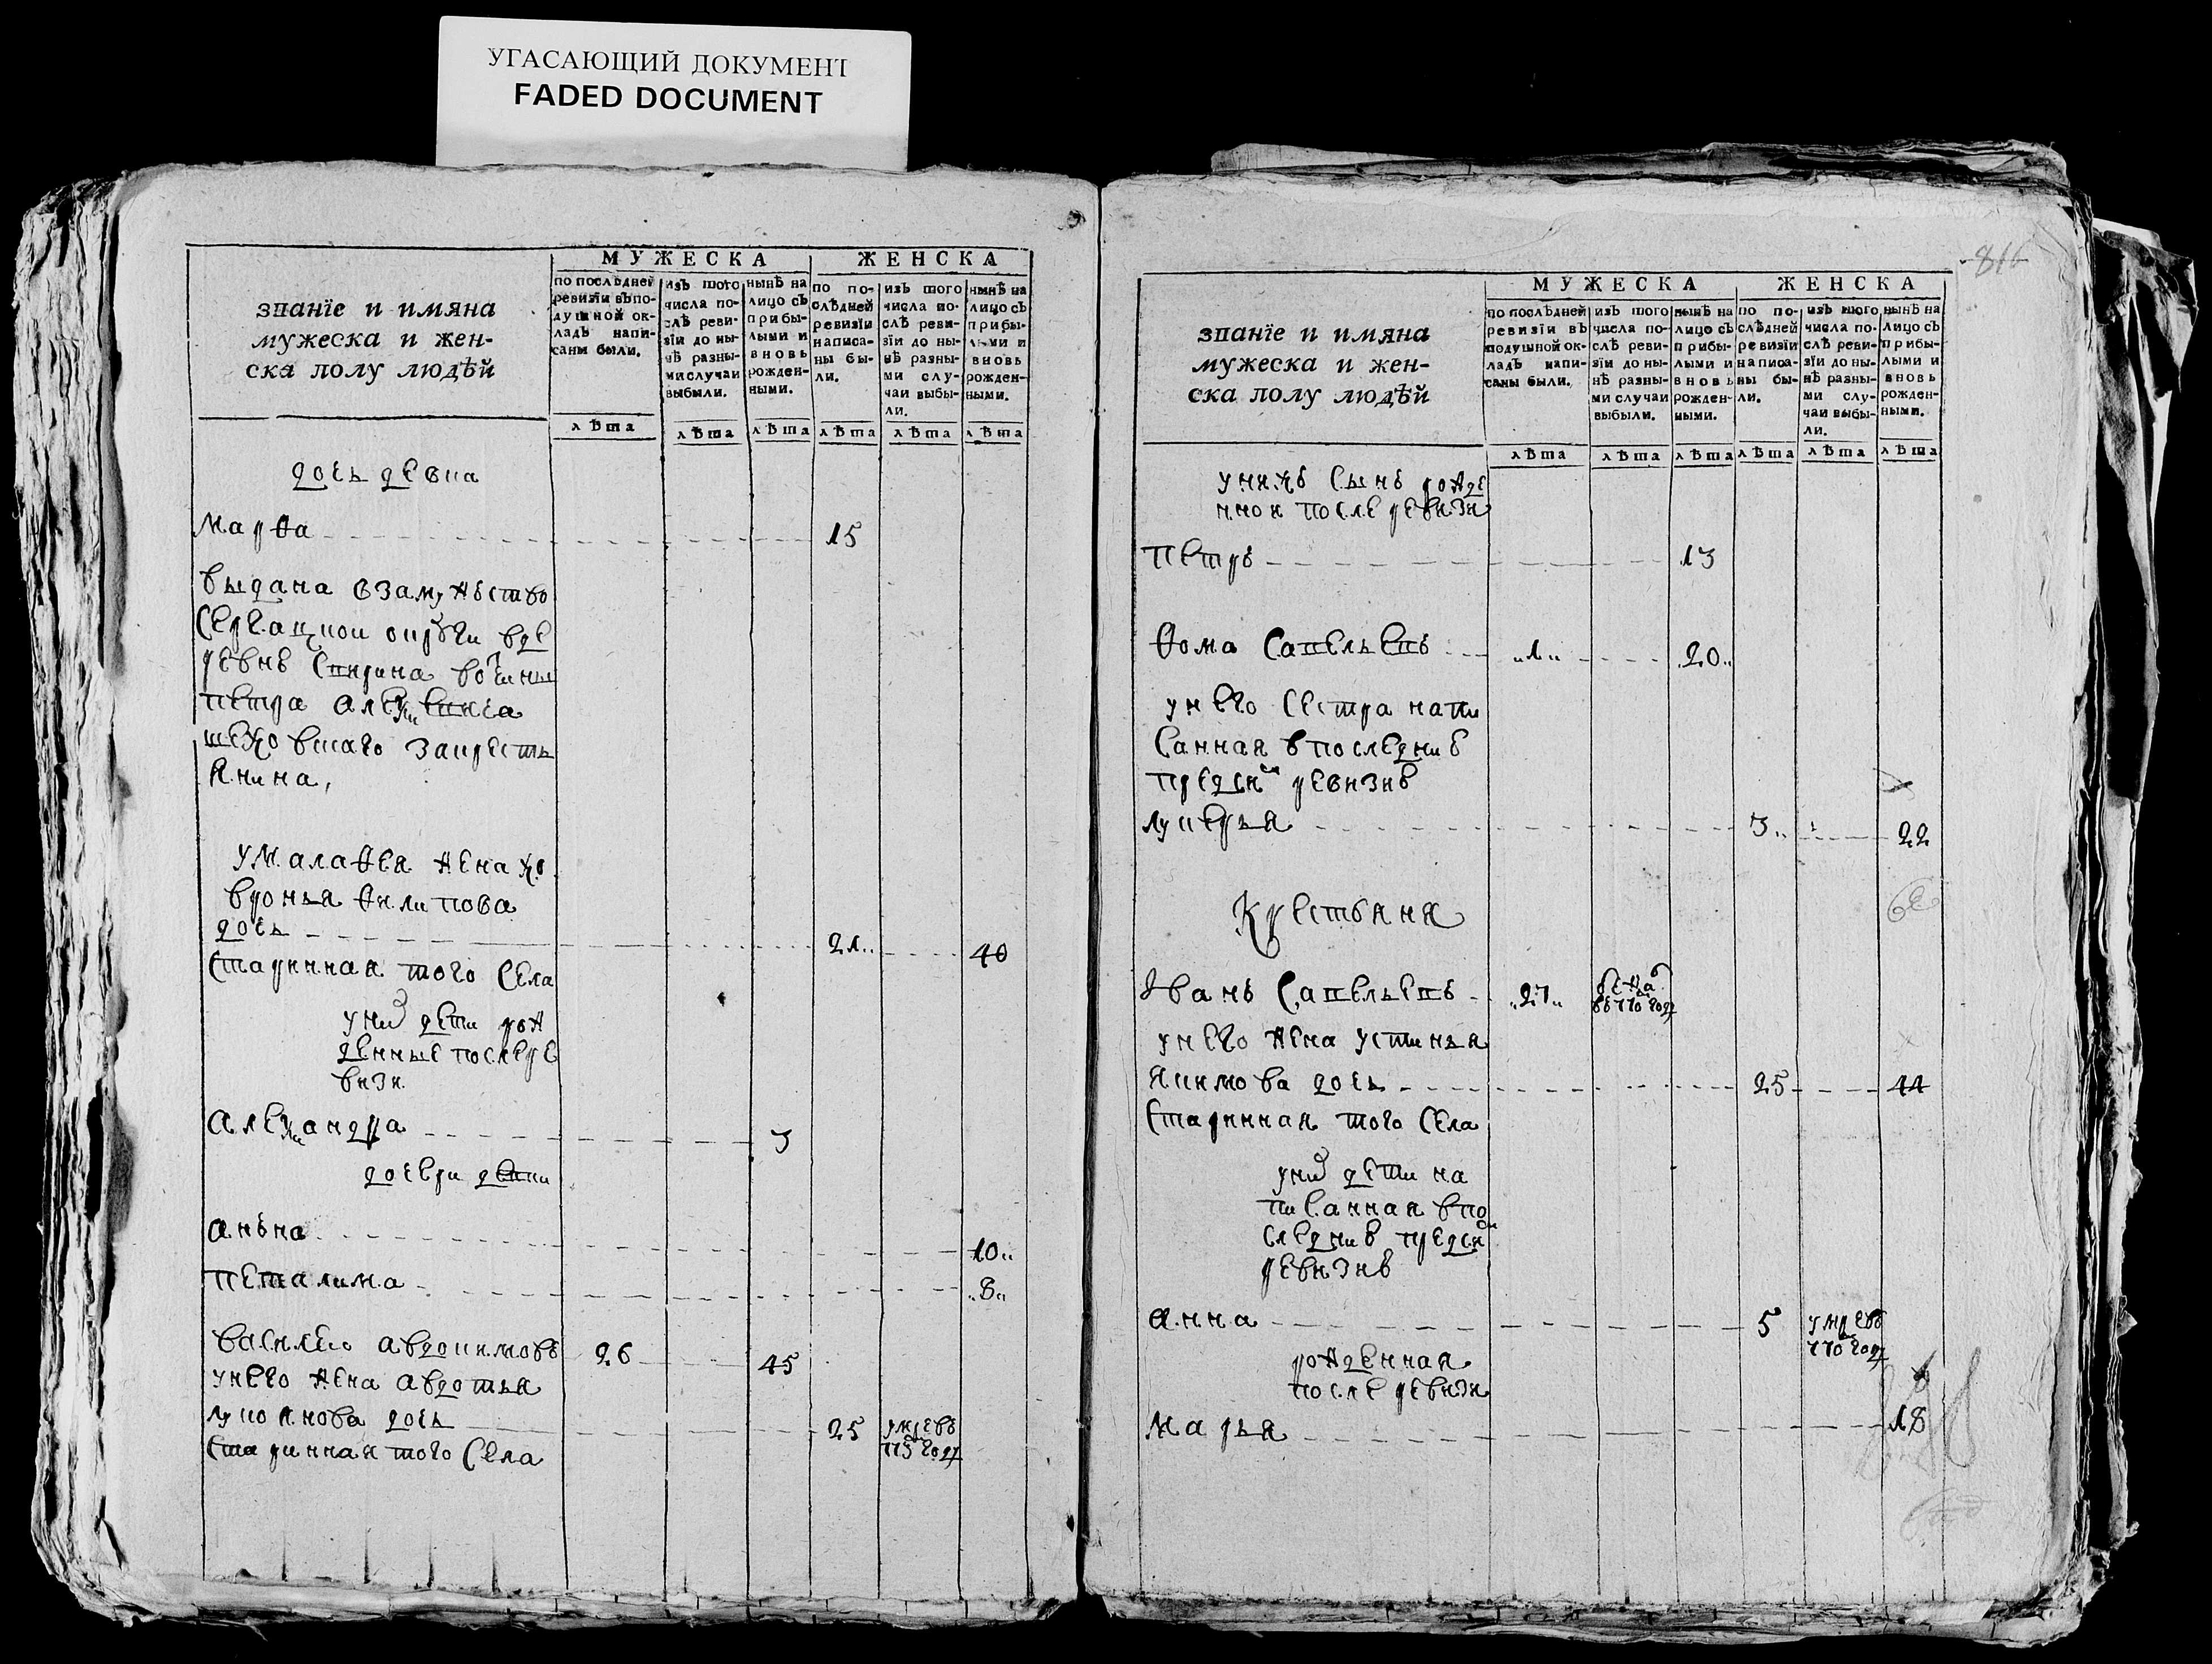 УГАСАЮЩИЙ ДОКУМЕНТ
FADED DOCUMENT
званїе и имяна
мужеска и жен-
ска полу людѣй
МУЖЕСКА
ЖЕНСКА
по послѣдней
ревизїи въ по-
душной ок-
ладъ напи-
саны были.
изъ того
числа по-
слѣ реви-
зїи до ны-
нѣ разны-
ми случаи
выбыли.
нынѣ на
лицо съ
прибы-
лыми и
вновь
рожден-
ными.
по по-
слѣдней
ревизїи
написа-
ны бы-
ли.
изъ того
числа по-
слѣ реви-
зїи до ны-
нѣ разны-
ми слу-
чаи выбы-
ли.
нынѣ на
лицо съ
прибы-
лыми и
вновь
рожден-
ными.
лѣта лѣта лѣта лѣта лѣта лѣта
дочь девка
Марфа 15
выдана взамужъство
округи вде
ревнѣ Спирина вотчины
Петра Алексеевича
закресть
янина,
у Малафея жена хо
вронья Филипова
дочь 21 40
Старинная того Села
уних дети рож
денные после ре
визи
Александра 3
дочери девки
Анъна 10
8
Василей Авдокимовъ 26 45
унего жена Авдотья
Лукоянова дочь 25 умре въ
775 году
Старинная того Села
816
званїе и имяна
мужеска и жен-
ска полу людѣй
МУЖЕСКА
ЖЕНСКА
по послѣдней
ревизїи въ
подушной ок-
ладъ напи-
саны были.
изъ того
числа по-
слѣ реви-
зїи до ны-
нѣ разны-
ми случаи
выбыли.
нынѣ на
лицо съ
прибы-
лыми и
вновь
рожден-
ными.
по по-
слѣдней
ревизїи
написа-
ны бы-
ли.
изъ того
числа по-
слѣ реви-
зїи до ны-
нѣ разны-
ми слу-
чаи выбы-
ли.
нынѣ на
лицо съ
прибы-
лыми и
вновь
рожден-
ными.
лѣта лѣта лѣта лѣта лѣта лѣта
унихъ сынъ рожде
нной после ревизи
Петръ 13
Фома Савельевъ 1 20
унего сестра напи
санная впоследниѣ
предси ревизиѣ
Лукерья 3 22
Крестьяня
Иванъ Савельевъ 27 бежа
въ 770 году
унего жена Устинья
Якимова дочь 25 44
Старинная того Села
уних дети на
писанная впо
следниѣ предси
ревизиѣ
Анна 5 умре въ
770 году
рожденная
после ревизи
Марья 18